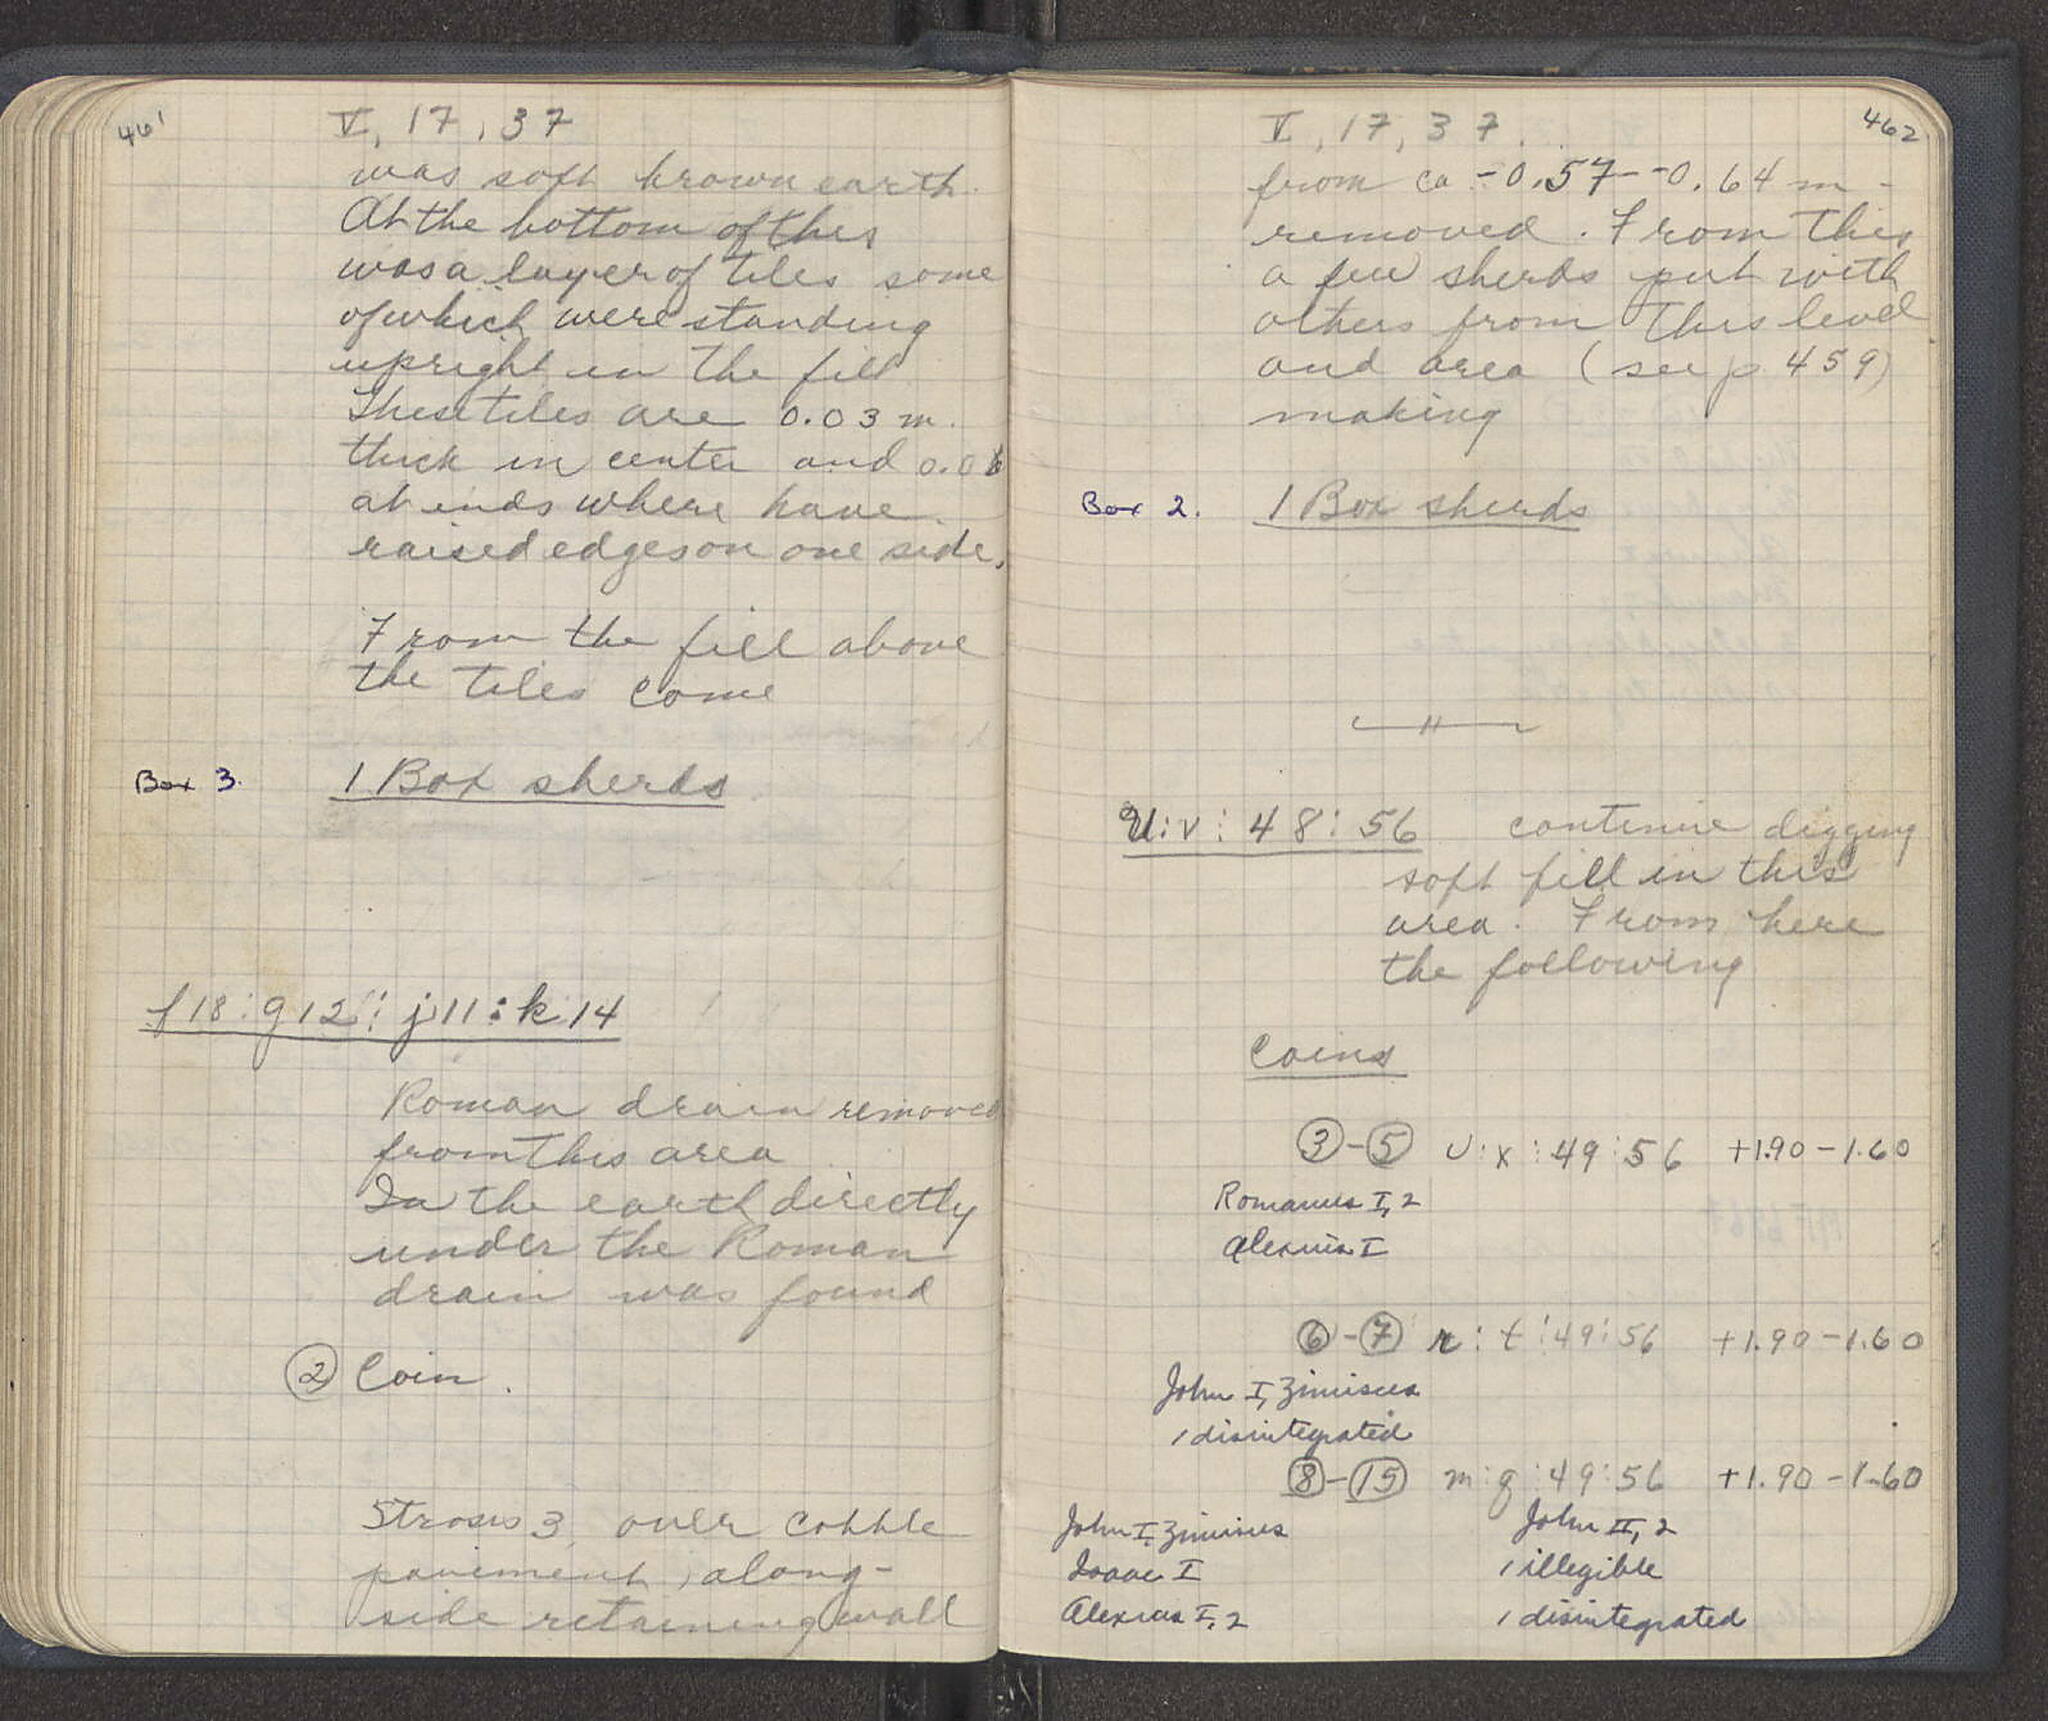 461
V, 17, 37
was soft brown earth.
At the bottom of this
was a layer of tiles some
of which were standing
upright in the fill
These tiles are 0.03 m.
thick in center and 0.06
at ends where have
raised edges on one side.
From the fill above
the tiles come
Box 3. 1 Box sherds
f18:g12⁝j11:k14
Roman drain removed
from this area
In the earth directly
under the Roman
drain was found
② Coin.
Strosis 3, over cobble
pavement, along-
side retaining wall
462
V, 17, 37.
from ca -0.57--0.64 m-
removed. From this
a few sherds put with
others from this level
and area (see p 459)
making
Box 2. 1 Box sherds
U:V⁝48:56 continue digging
soft fill in this
area. From here
the following
Coins
③-⑤ U:X⁝49:56 +1.90-1.60
Romanus I, 2
Alexius I
⑥-⑦ r:t⁝49:56 +1.90-1.60
John I, Zimisces
1 disintegrated
⑧-⑮ m:q⁝49:56 +1.90-1.60
John I, Zimisces John II, 2
Isaac I 1 illegible
Alexius I, 2 1 disintegrated